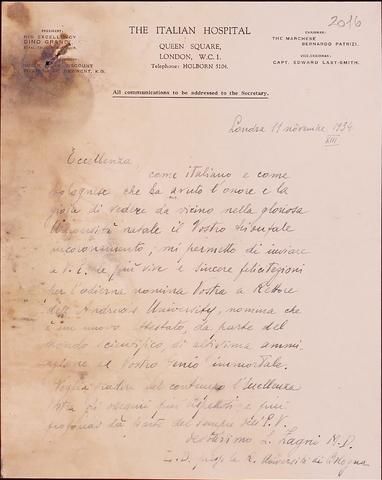 2016
PRESIDENT:
HIS EXCELLENCY
DINO GRANDI
THE ITALIAN HOSPITAL
QUEEN SQUARE,
LONDON, W.C. 1.
Telephone: HOLBORN 5104.
CHAIRMAN:
THE MARCHESE
BERNARDO PATRIZI.
VICE-CHAIRMAN:
CAPT. EDWARD LAST-SMITH.
All communications to be addressed to the Secretary.
Londra 11 novembre 1934
XIII
Eccellenza,
come italiano e come
bolognese che ha avuto l'onore e la
gioia di vedere da vicino nella gloriosa
Università natale il Vostro
mi permetto di inviare
a V.E. le più vive e sincere felicitazioni
per l'odierna nomina Vostra a Rettore
dell'Andrews University, nomina che
è un nuovo attestato, da parte del
mondo scientifico di altissima ammi-
razione al Vostro genio immortale.
Voglia gradire l'Eccellenza
Vostra gli ossequi più rispettosi e più
profondi da parte del sempre
devotissimo L. Zagni M.D.
R. Università di Bologna